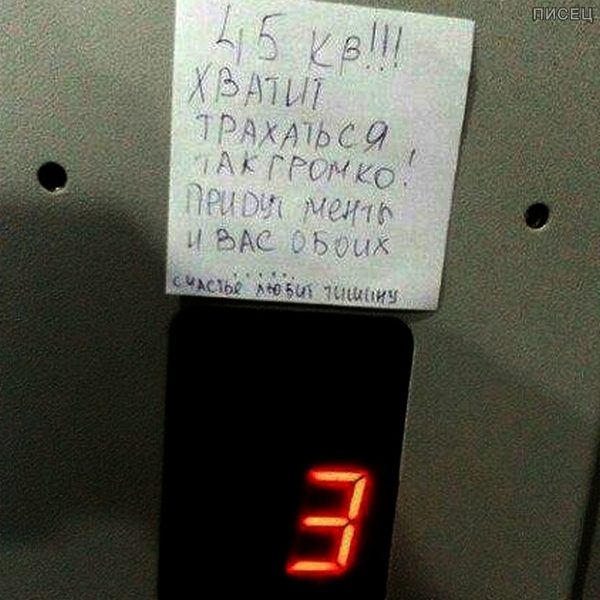 ПИСЕЦ
45 кв!!!
ХВАТИТ
ТРАХАТЬСЯ
ТАК ГРОМКО!
ПРИДУТ МЕНТЫ
И ВАС ОБОИХ
......
СЧАСТЬЕ ЛЮБИТ ТИШИНУ
3